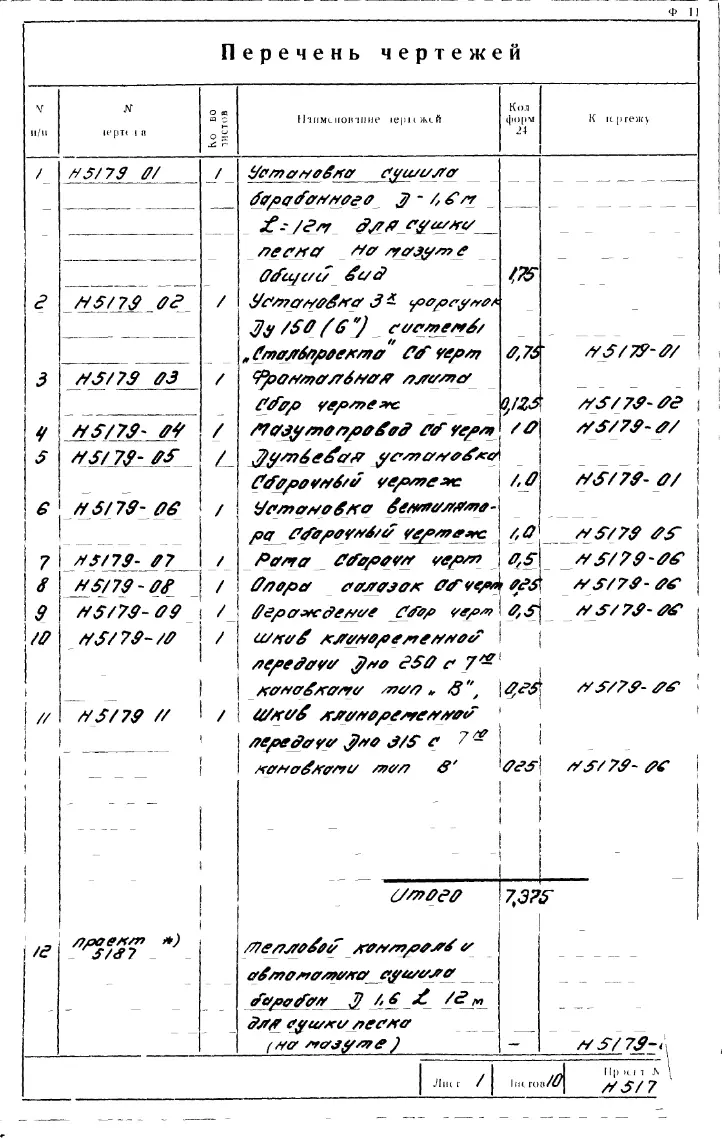 Ф 11
Перечень чертежей
N п/п N чертежа Кол во листов Наименование чертежей Кол форм 24 К чертежу
1 Н5179 01 1 Установка сушила
барабанного D - 1,6 м
L = 12м для сушки
песка на мазуте
Общий вид 1,75
2 Н5179 02 1 Установка 3х форсунок
Ду 150 (6") системы
„Стальпроекта" Сб черт 0,75 Н5179-01
3 Н5179 03 1 Фронтальная плита
Сбор чертеж 0,125 Н5179-02
4 Н5179-04 1 Мазутопровод Сб черт 1 0 Н5179-01
5 Н5179-05 1 Дутьевая установка
Сборочный чертеж 1,0 Н5179-01
6 Н5179-06 1 Установка вентилято-
ра Сборочный чертеж 1,0 Н5179 05
7 Н5179-07 1 Рама Сборочн черт 0,5 Н5179-06
8 Н5179-08 1 Опора салазок Сб черт 025 Н5179-06
9 Н5179-09 1 Ограждение Сбор черт 0,5 Н5179-06
10 Н5179-10 1 Шкив клиноременной
передачи Дно 250 с 7ю
канавками тип „В", 0,25 Н5179-06
11 Н5179 11 1 Шкив клиноременной
передачи Дно 315 с 7ю
канавками тип В' 025 Н5179-06
Итого 7,375
12 проект *) 5187 Тепловой контроль и
автоматика сушила
барабан D 1,6 L 12 м
для сушки песка
(на мазуте) – Н5179-
Лист 1 Листов 10 Проект N Н517